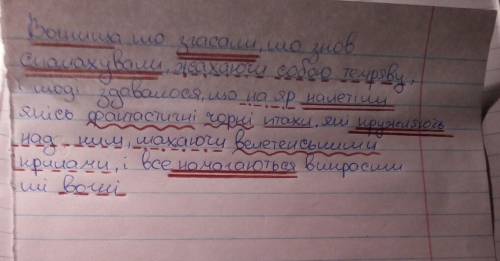 Вогнища, що згасали, що знов
спалахували, жахаючи собою темряву,
і тоді здавалося, що на яр налетіли
якісь фантастичні чорні птахи, які кружляють
над ним, махаючи велетенськими
крилами, і все намагаються випросити
ті вогні